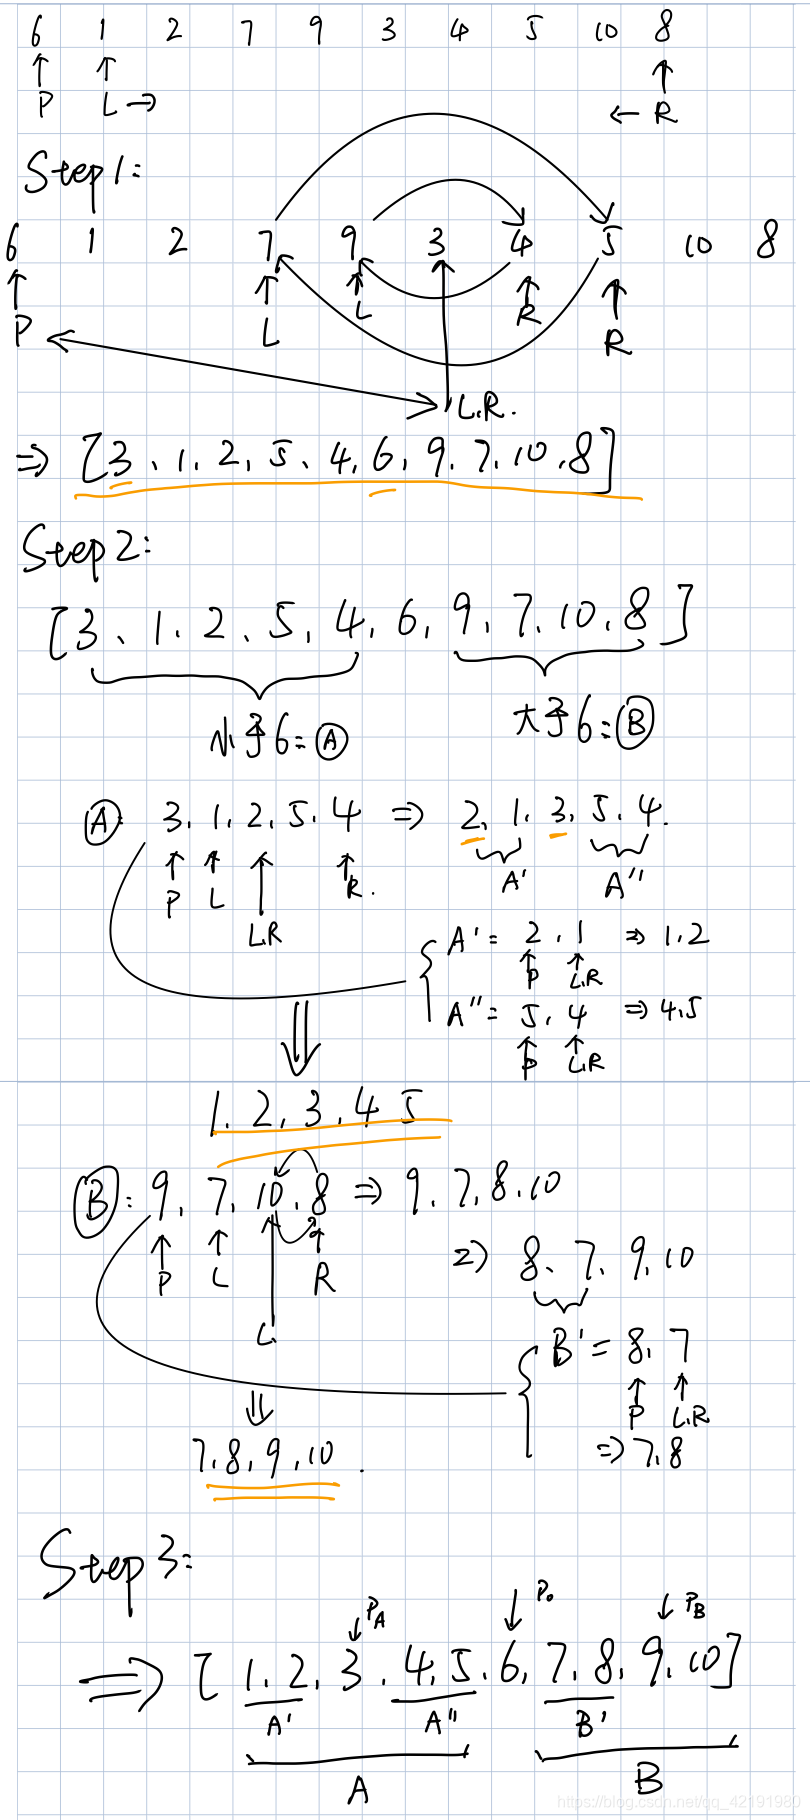 6 1 2 7 9 3 4 5 10 8
P L R
Step1:
6 1 2 7 9 3 4 5 10 8
P L L R R
L.R.
⇒ [3、1、2、5、4、6、9、7、10、8]
Step2:
[3、1、2、5、4、6、9、7、10、8]
小于6=Ⓐ 大于6=Ⓑ
Ⓐ: 3、1、2、5、4 ⇒ 2、1、3、5、4.
P L R.
L.R
A' A''
A' = 2、1 ⇒ 1、2
P L.R
A'' = 5、4 ⇒ 4,5
P L.R
1、2、3、4 5
Ⓑ: 9、7、10、8 ⇒ 9、7、8、10
P L R
L
⇒ 8、7、9、10
B' = 8、7
P L.R
⇒ 7、8
7、8、9、10.
Step3:
PA P0 PB
⇒ [1、2、3、4、5、6、7、8、9、10]
A' A'' B'
A B
https://blog.csdn.net/qq_42191980